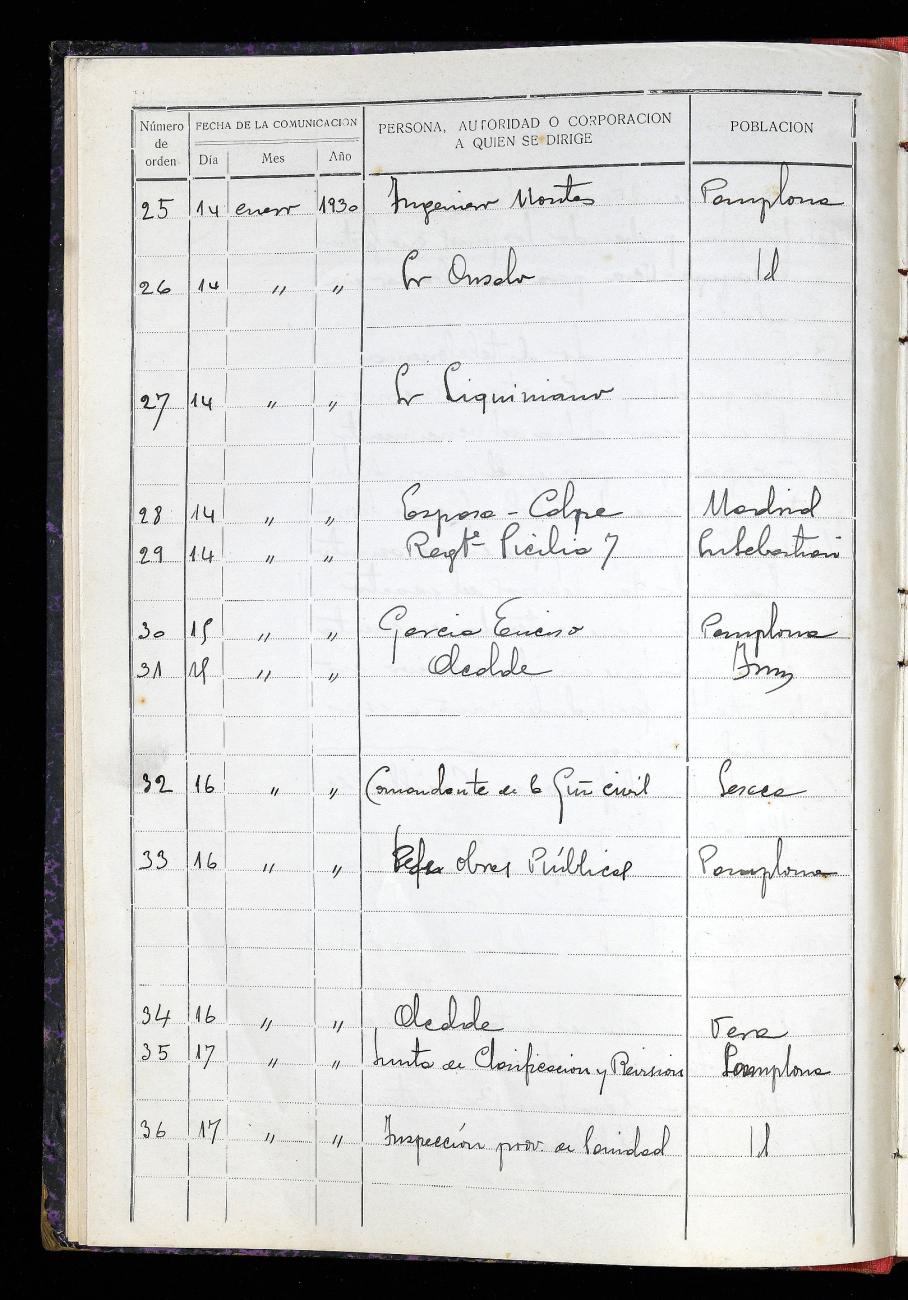 Número de orden FECHA DE LA COMUNICACION PERSONA, AUTORIDAD O CORPORACION A QUIEN SE DIRIGE POBLACION
Día Mes Año
25 14 enero 1930 Ingeniero Montes Pamplona
26 14 " " Sr Id
27 14 " " Sr Liquiniano
28 14 " " Espasa - Calpe Madrid
29 14 " " Regtº Sicilia 7 SnSebastian
30 15 " " Garcia Enciso Pamplona
31 15 " " Alcalde Irun
32 16 " " Comandante de la civil Lesaca
33 16 " " Jefe Obras Públicas Pamplona
34 16 " " Alcalde Vera
35 17 " " Junta de Clasificacion y Revision Pamplona
36 17 " " Inspección prov. de Sanidad Id